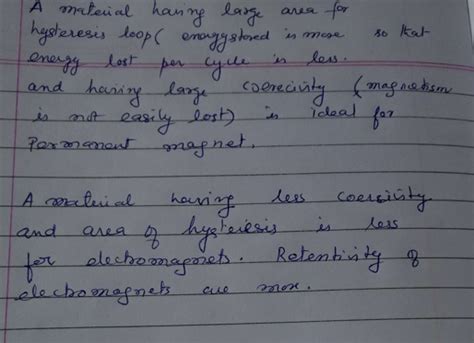 A material having large area for
hysteresis loop( energy stored is more so that
energy lost per cycle is less.
and having large coercivity (magnetism
is not easily lost) is ideal for
Permanent magnet.
A material having less coercivity
and area of hysteresis is less
for electromagnets. Retentivity of
electromagnets are more.